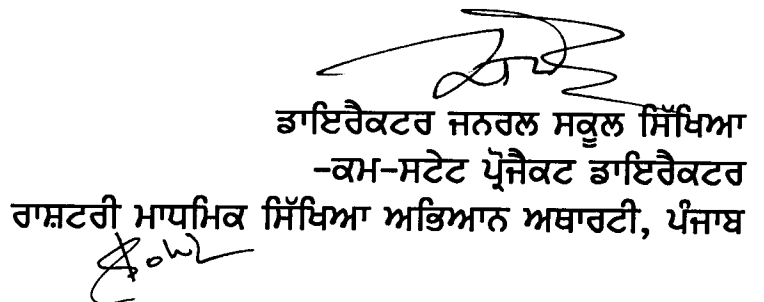 ਡਾਇਰੈਕਟਰ ਜਨਰਲ ਸਕੂਲ ਸਿੱਖਿਆ
-ਕਮ-ਸਟੇਟ ਪ੍ਰੋਜੈਕਟ ਡਾਇਰੈਕਟਰ
ਰਾਸ਼ਟਰੀ ਮਾਧਮਿਕ ਸਿੱਖਿਆ ਅਭਿਆਨ ਅਥਾਰਟੀ, ਪੰਜਾਬ